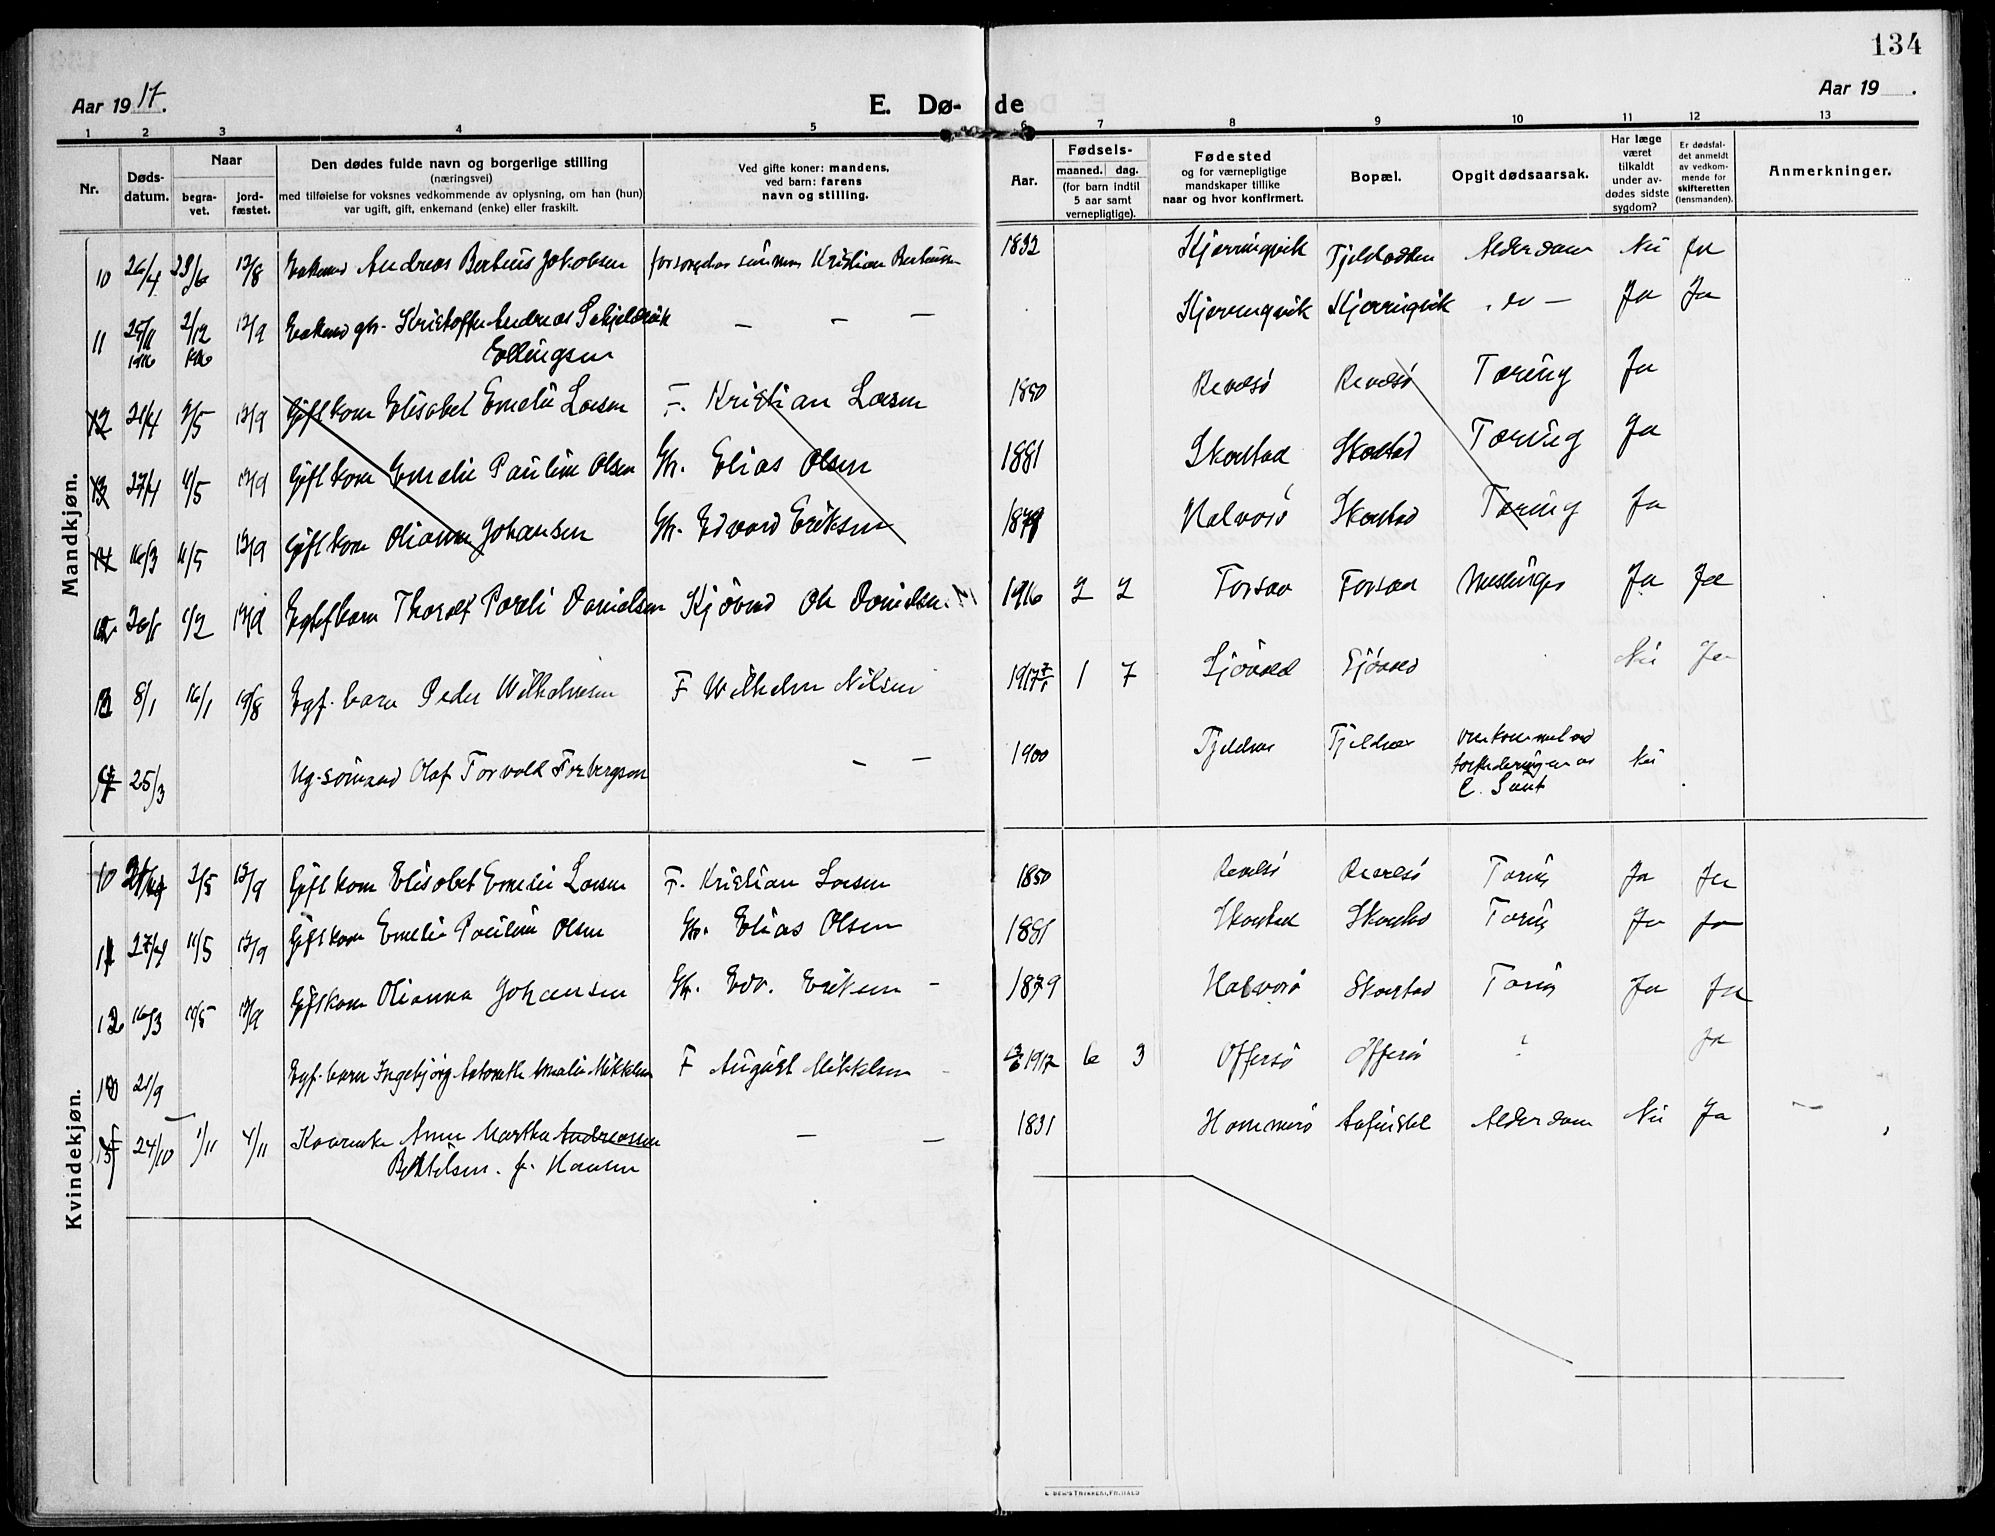 134
Aar 19 17.
E. Dø- de
Aar 19 .
1 2 3 4 5 6 7 8 9 10 11 12 13
Nr.
Døds-
datum.
Naar
begra-
vet.
jord-
fæstet.
Den dødes fulde navn og borgerlige stilling
(næringsvei)
med tilføielse for voksnes vedkommende av oplysning, om han (hun)
var ugift, gift, enkemand (enke) eller fraskilt.
Ved gifte koner: mandens,
ved barn: farens
navn og stilling.
Aar.
Fødsels-
maaned. dag.
(for barn indtil
5 aar samt
vernepligtige).
Fødested
og for værnepligtige
mandskaper tillike
naar og hvor konfirmert.
Bopæl.
Opgit dødsaarsak.
Har læge
været
tilkaldt
under av-
dødes sidste
sygdom?
Er dødsfal-
det anmeldt
av vedkom-
mende for
skifteretten
(lensmanden).
Anmerkninger.
Mandkjøn.
10 26/4 12/8 Enkemd Andreas Bertius Jakobsen Kristian 1832 Kjerringvik Alderdom Nei Ja
11 25/11 2/12 12/9 Enkemd gbr. Kristoffer Andreas Kjerringvik Kjerringvik do — Ja Ja
1916 1916 Ellingsen — — —
12 21/4 2/5 12/9 Gift kone Elisabet Emelie Larsen F. Kristian Larsen 1850 Revelsø Revelsø Tæring Ja
13 27/4 11/5 12/9 Gift kone Emelie Pauline Olsen Gbr. Elias Olsen 1881 Skarstad Skarstad Tæring Ja
14 16/3 11/5 12/9 Gift kone Olianna Johansen Gbr. Edvard Eriksen 1879 Halvarø Skarstad Tæring Ja
12 26/1 1/2 12/9 Egtef. barn Thoralf Pareli Danielsen Ole Danielsen 1916 2 2 Forsaa Forsaa Meslinger Ja Ja
13 8/1 16/1 19/8 Egf. barn Peder Wilhelmsen F Wilhelm Nilsen 1917 1 7 Sjøvold Sjøvold Nei Ja
14 25/3 Ug. sømand Olaf Torvald Forbergson — — 1900 Tjeldnes Tjeldnes omkommet ved
torpederingen av
Nei
Kvindekjøn.
10 21/4 2/5 12/9 Gift kone Elisabet Emelie Larsen F. Kristian Larsen 1850 Revelsø Revelsø Tæring Ja Ja
11 27/4 11/5 12/9 Gift kone Emelie Pauline Olsen Gbr. Elias Olsen 1881 Skarstad Skarstad Tæring Ja Ja
12 16/3 11/5 12/9 Gift kone Olianna Johansen Gbr. Edv. Eriksen — 1879 Halvarø Skarstad Tæring Ja Ja
21/9 Egf. barn Ingebjørg Amalie Mikkelsen F August Mikkelsen 1917 6 3 Offersø Offersø ? Ja
24/10 1/11 4/11 Anne Martha Andreassen — — 1831 Hammerø Alderdom Nei Ja —
Bertelsen. f. Hansen